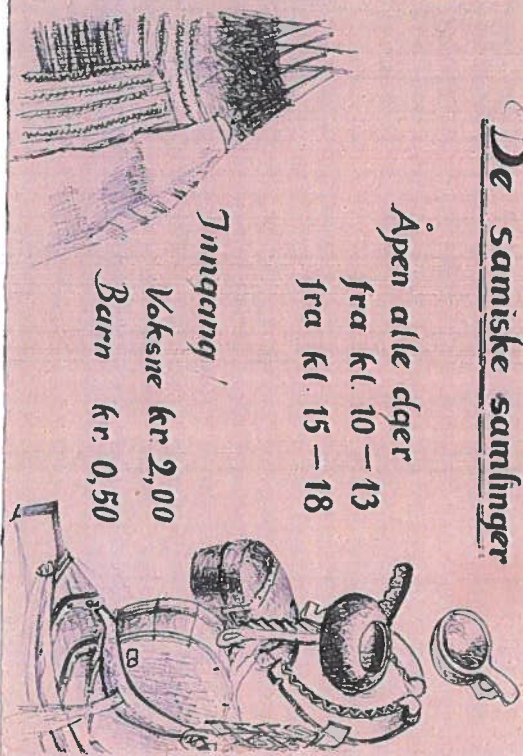 De samiske samlinger
Åpen alle dger
fra kl. 10 – 13
fra kl. 15 – 18
Inngang
Voksne kr. 2,00
Barn kr. 0,50